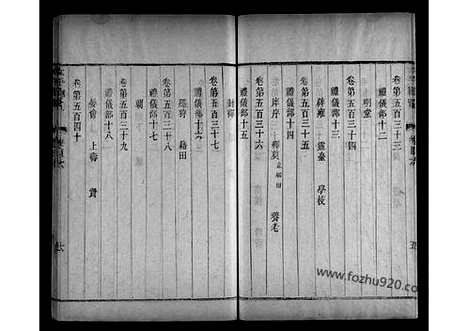 卷第五百三十三
禮儀部十二
明堂
卷第五百三十四
禮儀部十三
辟雍 靈臺 學校
卷第五百三十五
禮儀部十四
庠序 釋奠 養老
卷第五百三十六
禮儀部十五
封禪
卷第五百三十七
禮儀部十六
籍田
卷第五百三十八
禮儀部十七
朝
卷第五百三十九
上壽
卷第五百四十
www.fozhu920.com